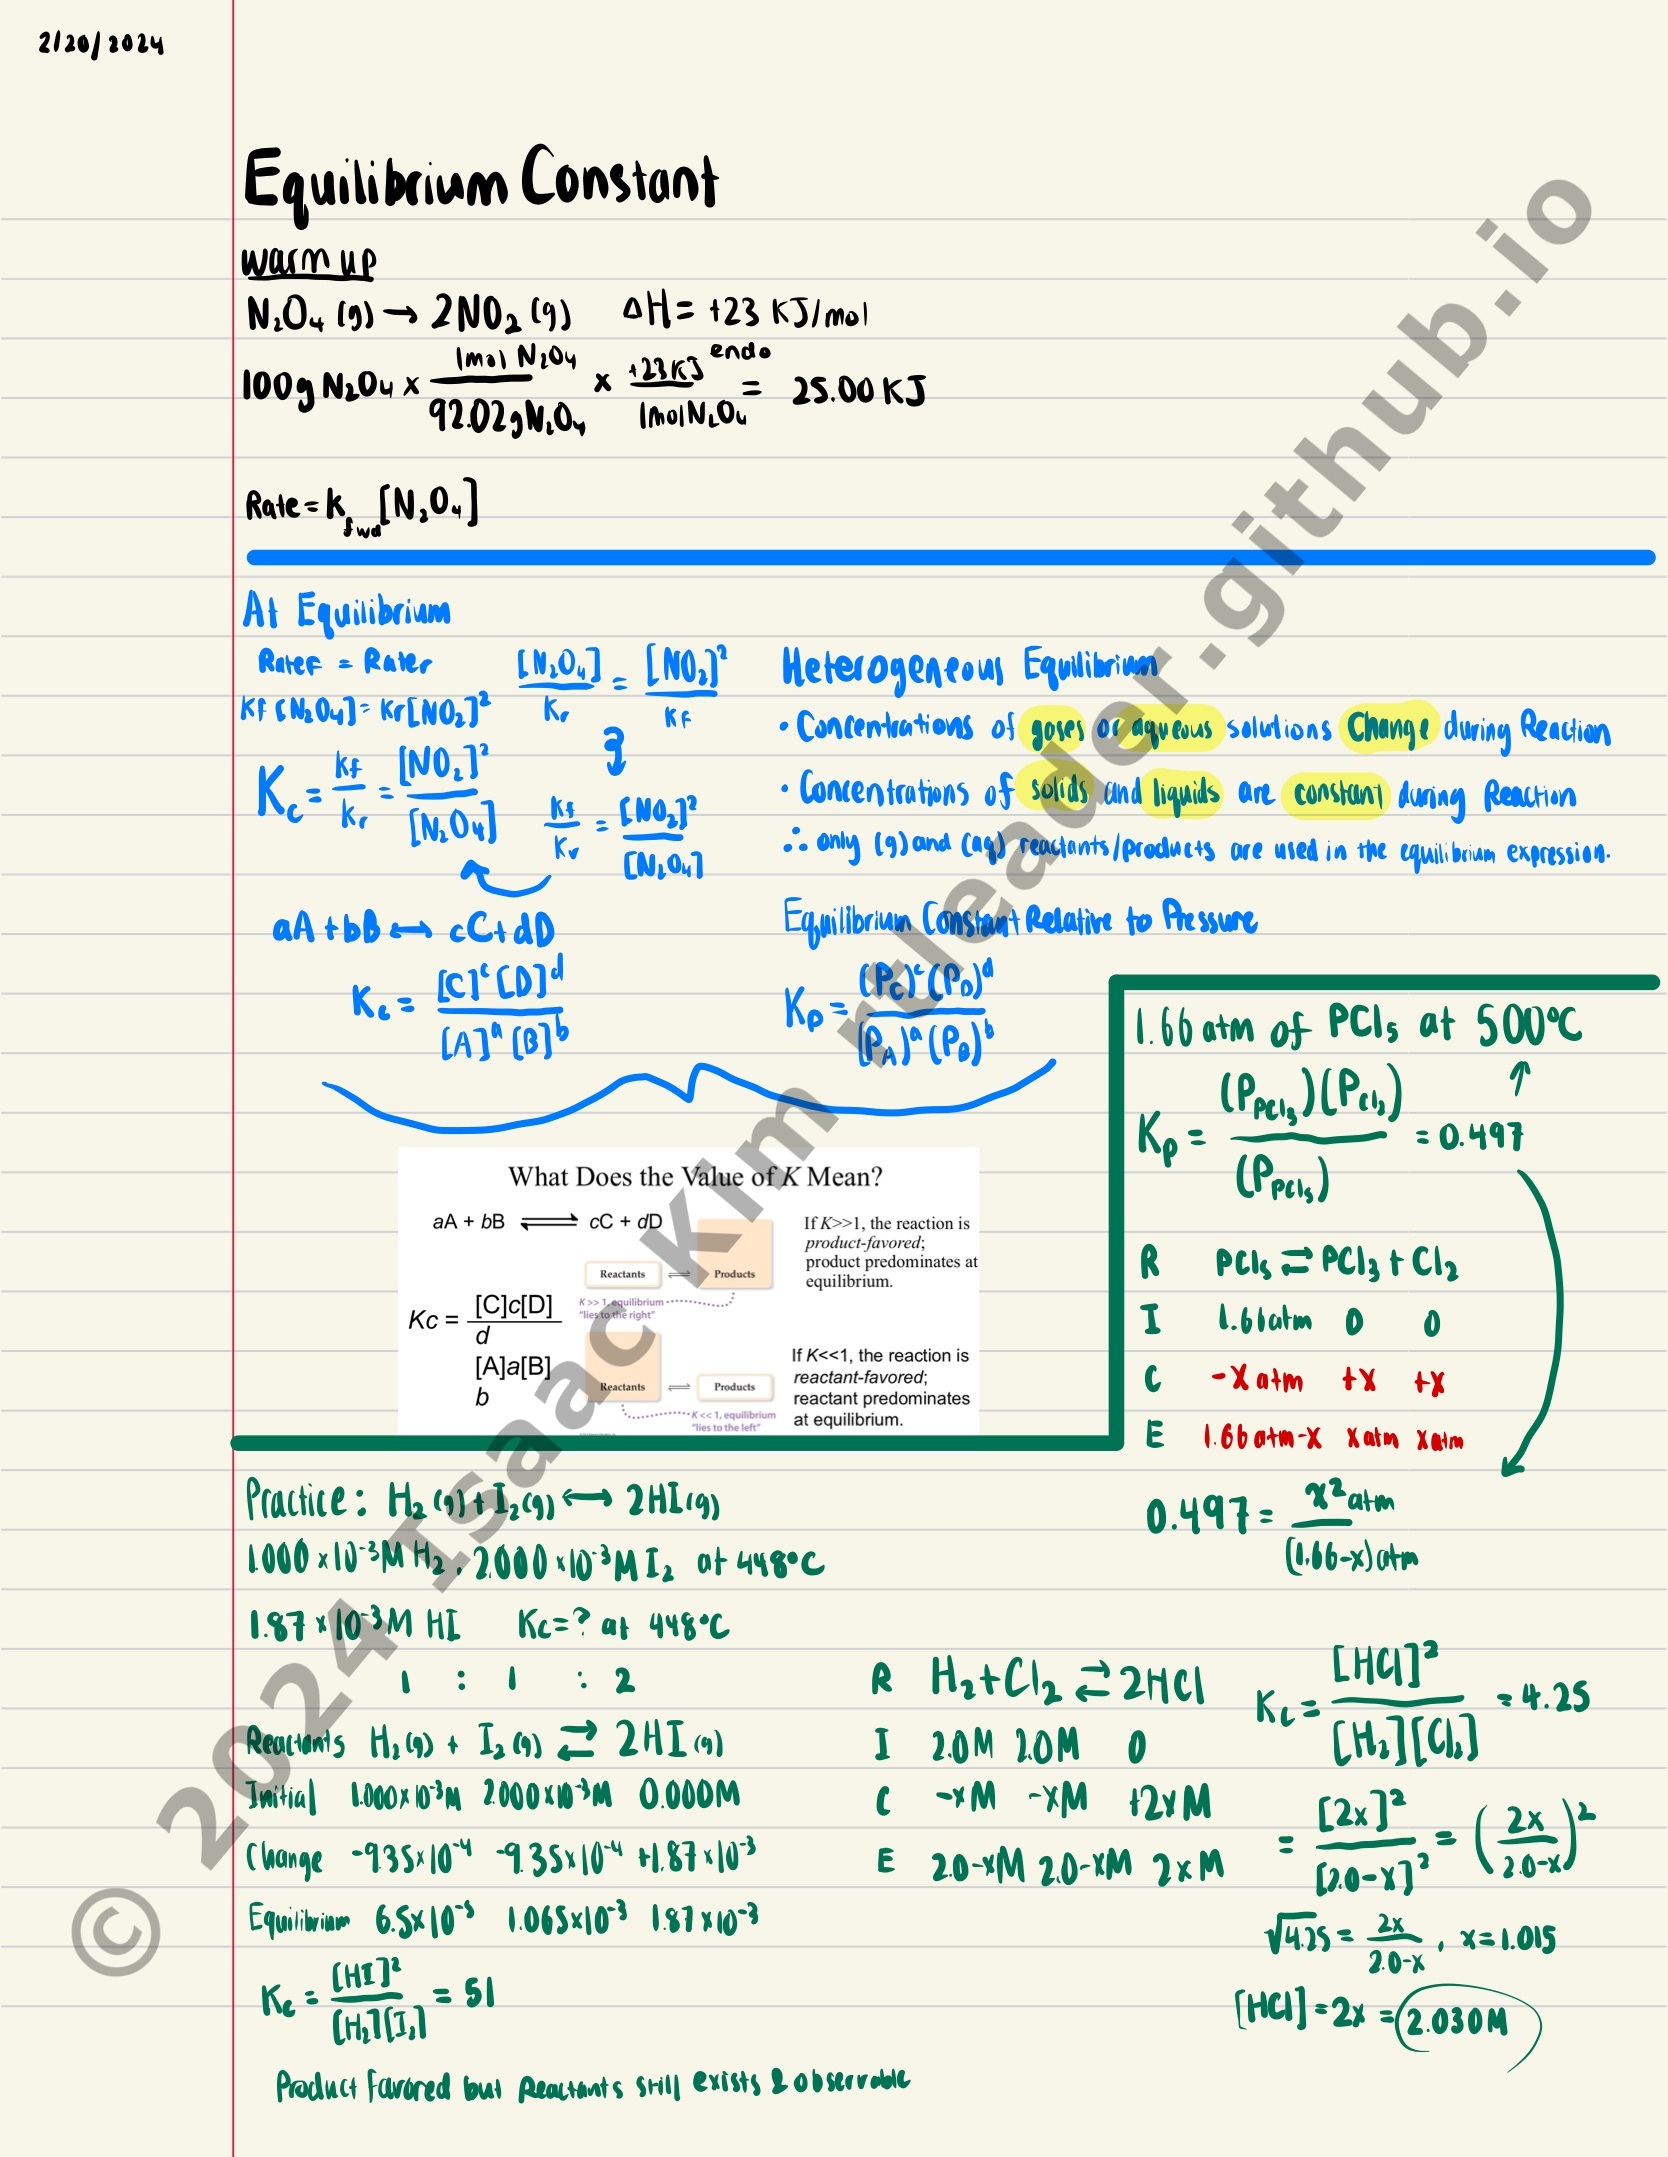 2/20/2024
Equilibrium Constant
warm up
N₂O₄ (g) → 2NO₂ (g) ΔH = +23 KJ/mol
100g N₂O₄ × 1mol N₂O₄ / 92.02g N₂O₄ × +23KJ / 1mol N₂O₄ endo = 25.00 KJ
Rate = k fwd [N₂O₄]
At Equilibrium
Ratef = Rater
Kf [N₂O₄] = Kr[NO₂]²
[N₂O₄] / Kr = [NO₂]² / Kf
Kc = kf / kr = [NO₂]² / [N₂O₄]
kf / Kr = [NO₂]² / [N₂O₄]
aA + bB ↔ cC + dD
Kc = [C]ᶜ [D]ᵈ / [A]ᵃ [B]ᵇ
Heterogeneous Equilibrium
• Concentrations of gases or aqueous solutions Change during Reaction
• Concentrations of solids and liquids are constant during Reaction
∴ only (g) and (aq) reactants/products are used in the equilibrium expression.
Equilibrium Constant Relative to Pressure
Kp = (P_C)ᶜ (P_D)ᵈ / (P_A)ᵃ (P_B)ᵇ
What Does the Value of K Mean?
aA + bB ⇌ cC + dD
Kc = [C]c[D]
d
[A]a[B]
b
Reactants ⇌ Products
K >> 1, equilibrium
"lies to the right"
If K>>1, the reaction is
product-favored;
product predominates at
equilibrium.
Reactants ⇌ Products
K << 1, equilibrium
"lies to the left"
If K<<1, the reaction is
reactant-favored;
reactant predominates
at equilibrium.
1.66 atm of PCl₅ at 500°C
Kp = (P_PCl₃)(P_Cl₂) / (P_PCl₅) = 0.497
R PCl₅ ⇌ PCl₃ + Cl₂
I 1.66atm 0 0
C -x atm +x +x
E 1.66atm-x x atm x atm
0.497 = x² atm / (1.66-x) atm
Practice: H₂ (g) + I₂ (g) ↔ 2HI (g)
1.000 × 10⁻³ M H₂, 2.000 × 10⁻³ M I₂ at 448°C
1.87 × 10⁻³ M HI Kc = ? at 448°C
1 : 1 : 2
Reactants H₂(g) + I₂(g) ⇌ 2HI (g)
Initial 1.000×10⁻³M 2.000×10⁻³M 0.000M
Change -9.35×10⁻⁴ -9.35×10⁻⁴ +1.87×10⁻³
Equilibrium 6.5×10⁻⁵ 1.065×10⁻³ 1.87×10⁻³
Kc = [HI]² / [H₂][I₂] = 51
Product favored but Reactants still exists & observable
R H₂ + Cl₂ ⇌ 2HCl
I 2.0M 2.0M 0
C -xM -xM +2xM
E 2.0-xM 2.0-xM 2xM
Kc = [HCl]² / [H₂][Cl₂] = 4.25
= [2x]² / [2.0-x]² = (2x / 2.0-x)²
√4.25 = 2x / 2.0-x, x = 1.015
[HCl] = 2x = 2.030M
© 2024 Isaac Kim rtleader.github.io